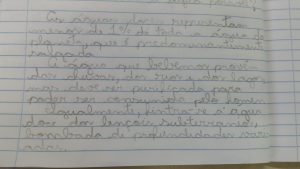 água potável
As águas doces representam
menos de 1% de toda a água do
planeta, que é predominantemente
salgada.
A água que bebemos provém
das chuvas, dos rios e dos lagos
mas deve ser purificada para
poder ser consumida pelo homem.
Igualmente, extrai-se a água
doce dos lençóis subterrâneos,
bombada de profundidades vari
adas.